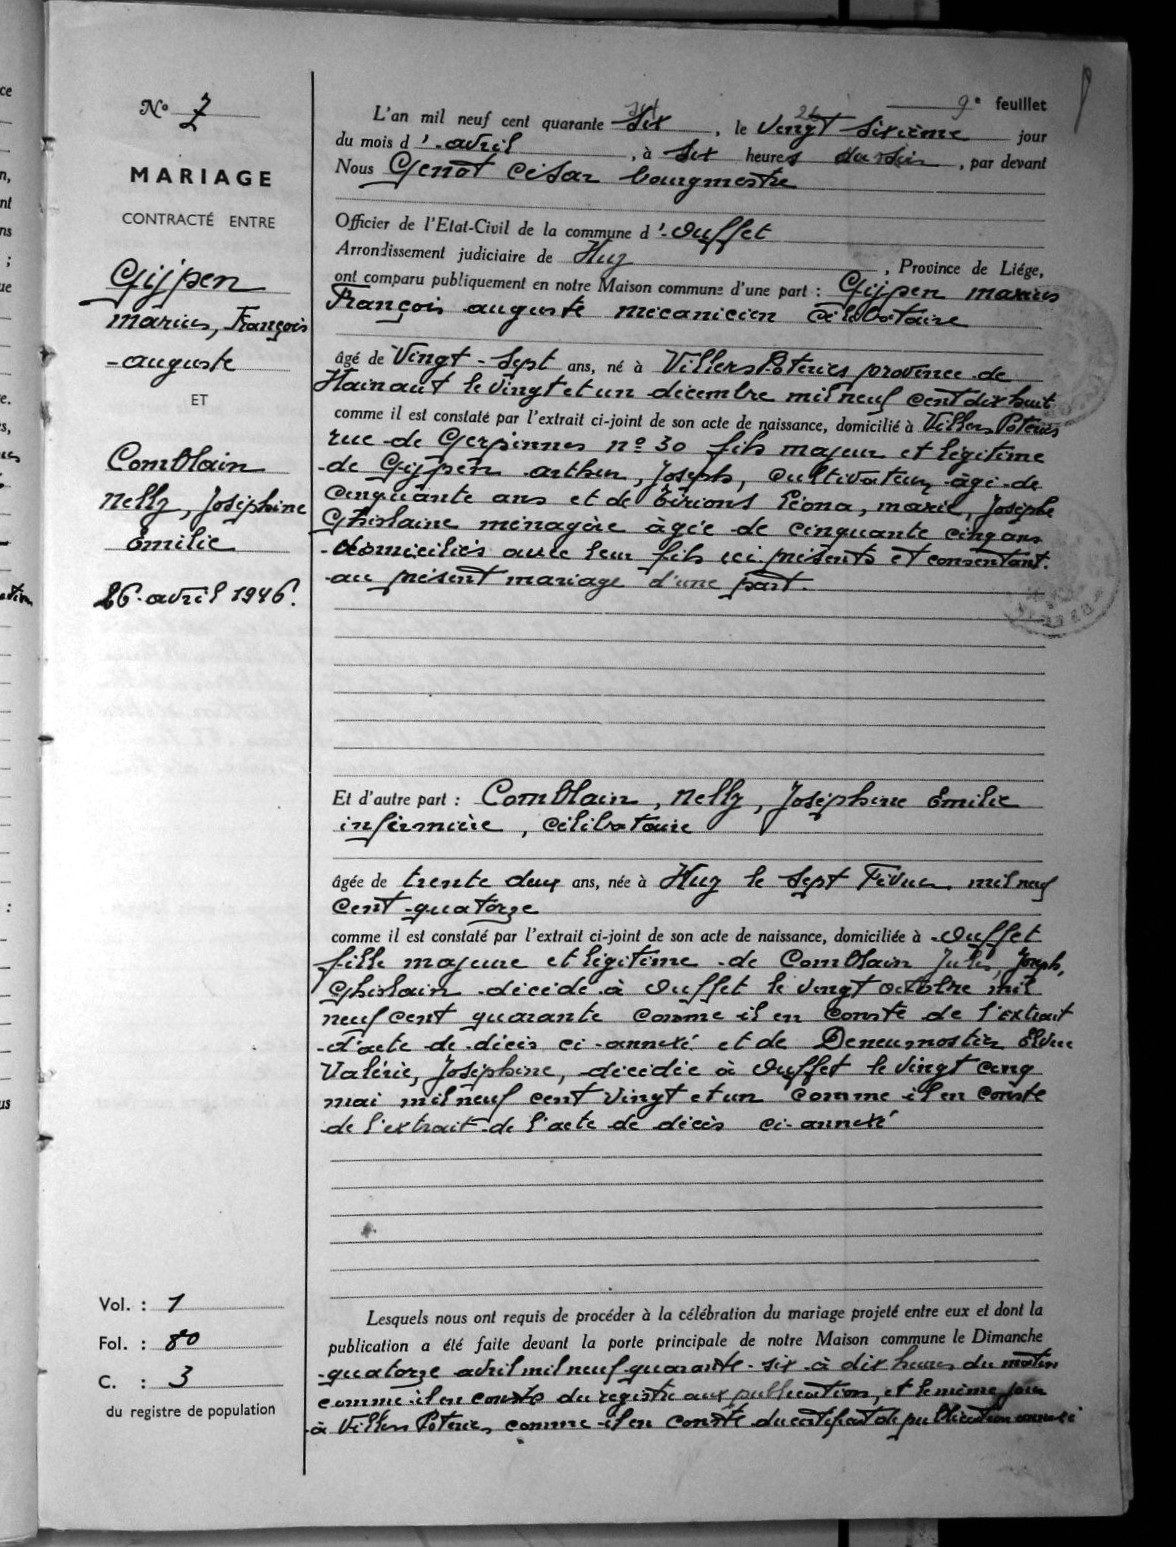 9e feuillet
No 7
MARIAGE
CONTRACTÉ ENTRE
Gijpen
Marius, François
-auguste
ET
Comblain
Nelly, Joséphine
Émilie
26 avril 1946.
Vol. : 1
Fol. : 80
C. : 3
du registre de population
L'an mil neuf cent quarante six, le vingt sixième jour
du mois d'avril, à six heures du soir, par devant
Nous Genot César bourgmestre
Officier de l'Etat-Civil de la commune d'Ouffet
Arrondissement judiciaire de Huy, Province de Liége,
ont comparu publiquement en notre Maison commune d'une part : Gijpen Marius
François auguste mécanicien célibataire
âgé de Vingt-Sept ans, né à Villers Poteries province de
Hainaut le vingt et un décembre mil neuf cent dix huit
comme il est constaté par l'extrait ci-joint de son acte de naissance, domicilié à Villers Poteries
rue de Gerpinnes no 30 fils majeur et légitime
de Gijpen Arthur, Joseph, cultivateur âgé de
cinquante ans et de Léona, Marie, Josèphe
Ghislaine ménagère âgée de cinquante cinq ans
domiciliés avec leur fils ici présents et consentant
au présent mariage d'une part.
Et d'autre part : Comblain, Nelly, Joséphine Emilie
infirmière, célibataire
âgée de trente deux ans, née à Huy le sept Février mil neuf
cent quatorze
comme il est constaté par l'extrait ci-joint de son acte de naissance, domiciliée à Ouffet
fille majeure et légitime de Comblain Jules, Joseph,
Ghislain décédé à Ouffet le vingt octobre mil
neuf cent quarante comme il en conste de l'extrait
d'acte de décès ci-annexé et de Deneumostier
Valérie, Joséphine, décédée à Ouffet le vingt cinq
mai mil neuf cent vingt et un comme il en conste
de l'extrait de l'acte de décès ci-annexé
Lesquels nous ont requis de procéder à la célébration du mariage projeté entre eux et dont la
publication a été faite devant la porte principale de notre Maison commune le Dimanche
quatorze avril mil neuf quarante-six à dix heures du matin
comme il en conste du registre aux publication, et le même jour
à Villers Poteries, comme il en conste du certificat de publication annexé